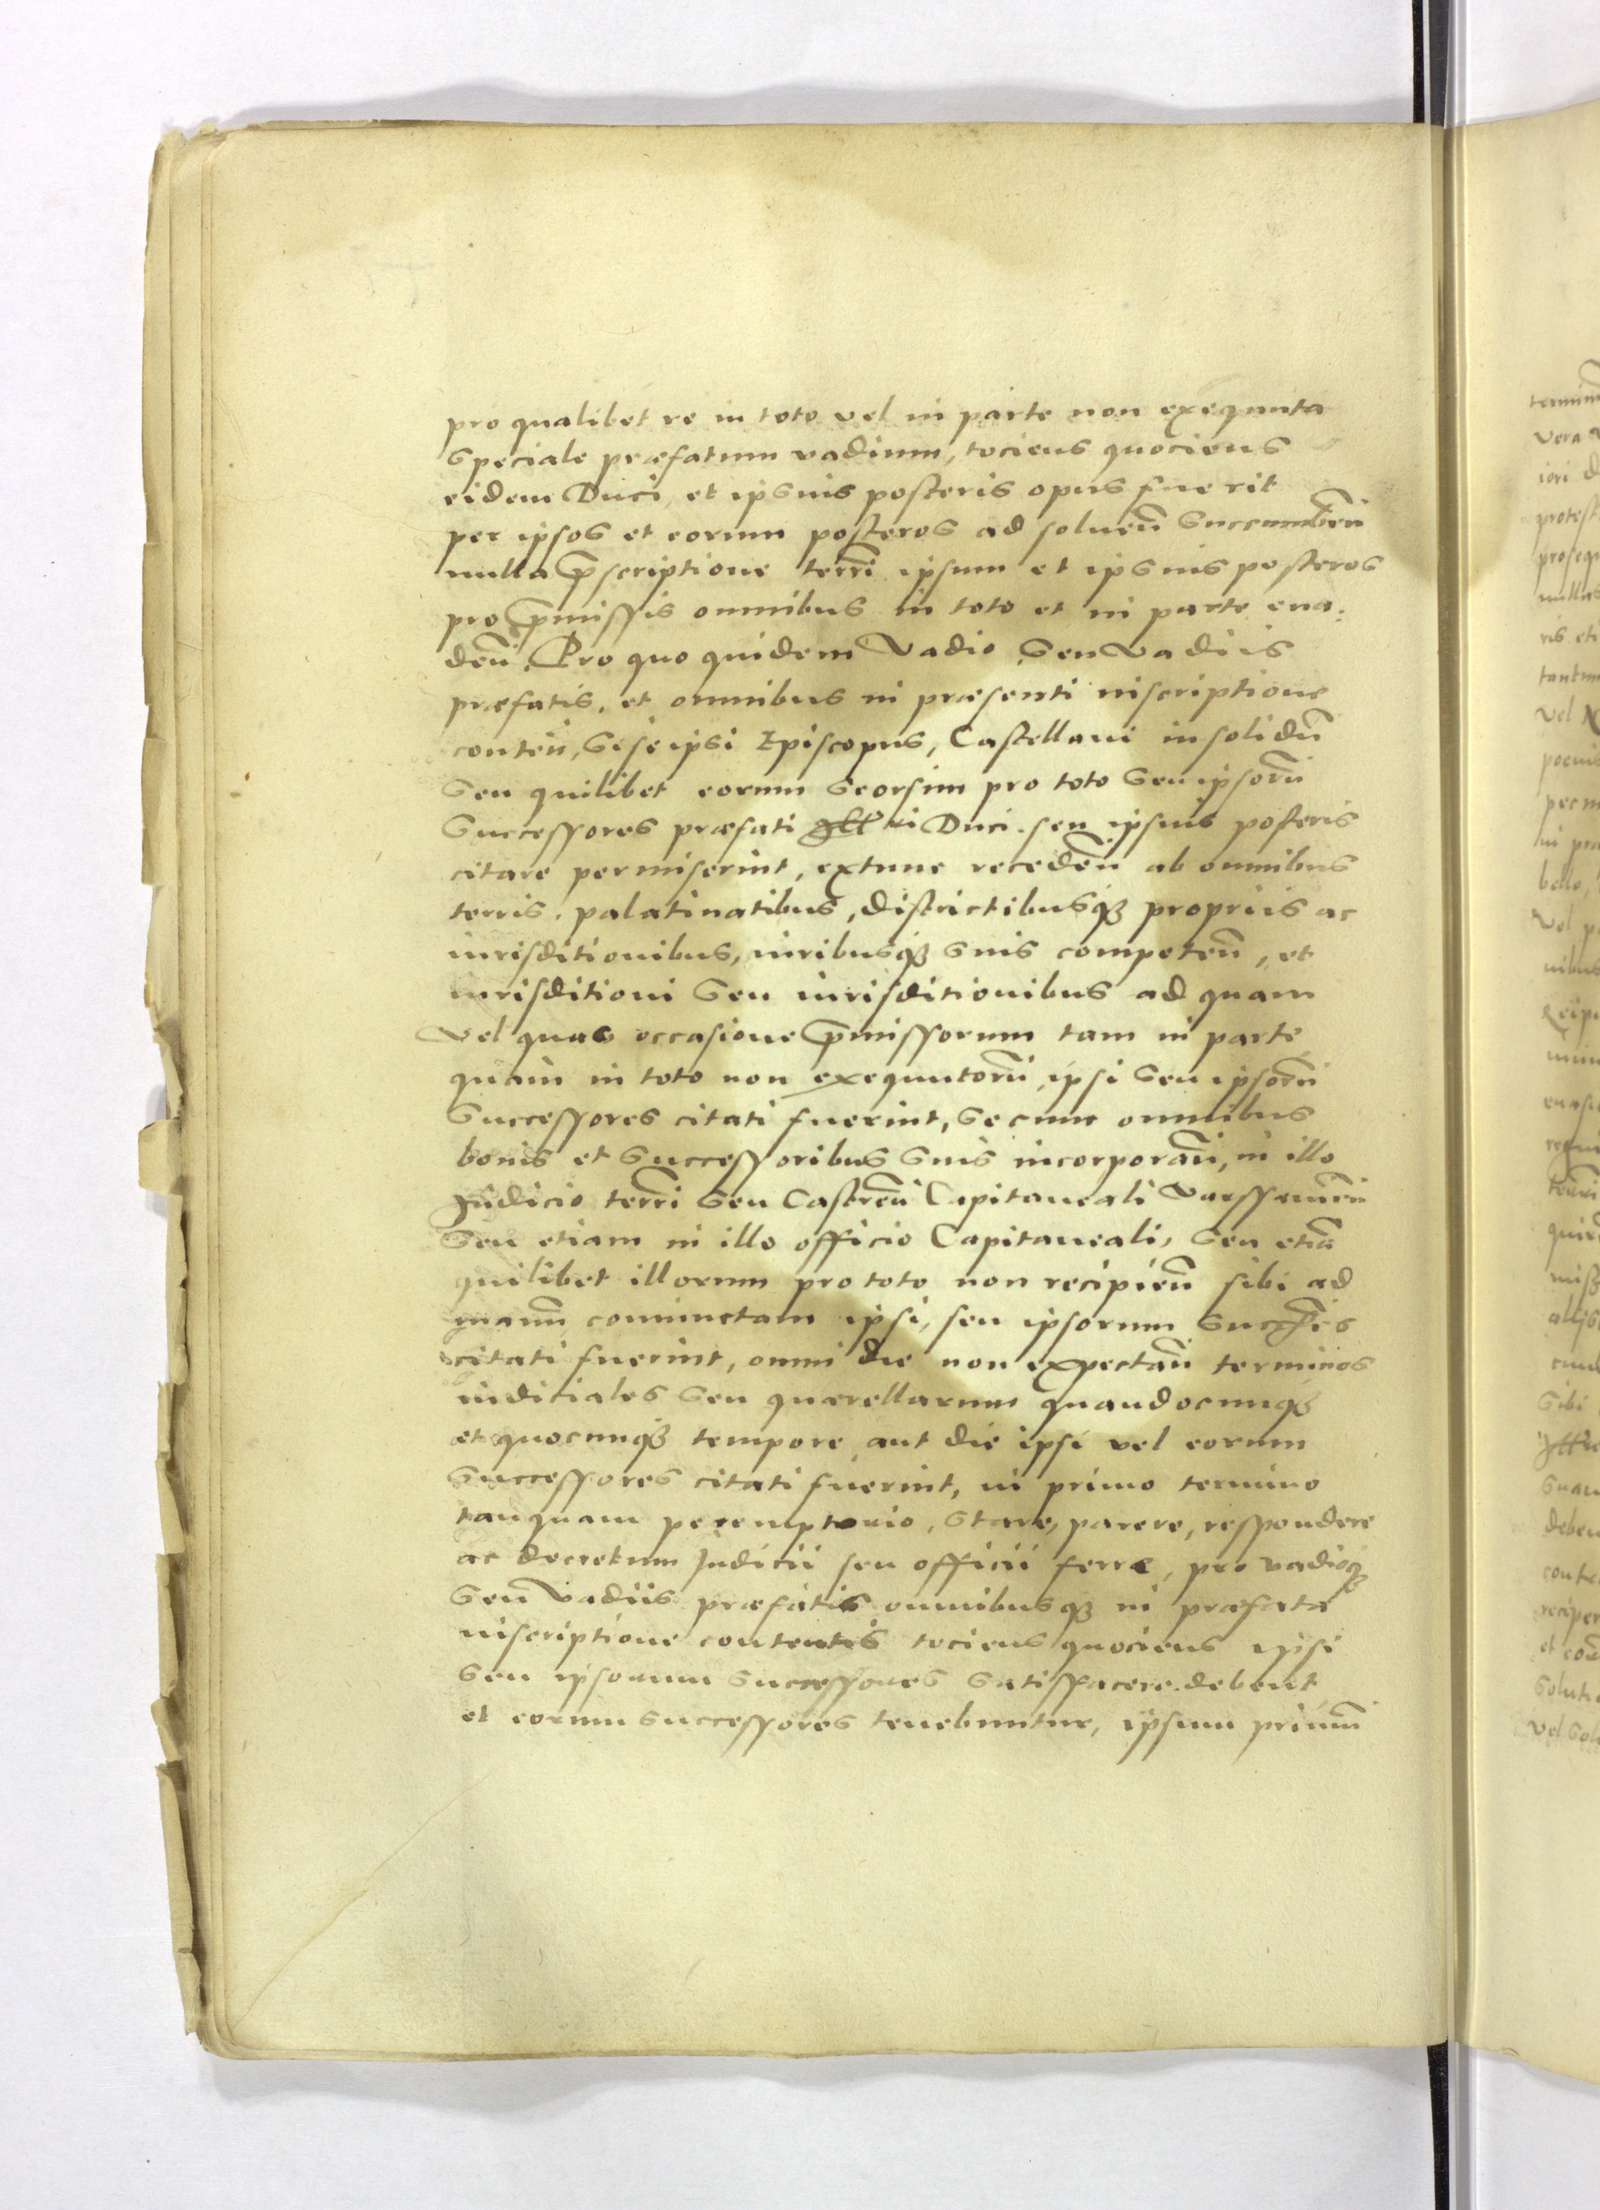 pro qualibet re in toto vel in parte non exequuta
speciale præfatum vadium, tociens quociens
eidem Duci, et ipsius posteris opus fuerit
per ipsos et eorum posteros ad soluen̄ succumben̄
nulla p̄scriptione terr̄i ipsum et ipsius posteros
pro p̄missis omnibus in toto et in parte eua:
den̄. Pro quo quidem Vadio, seu Vadiis
præfatis, et omnibus in præsenti inscriptione
conten̄, si se ipsi Episcopus, Castellani in solidū
seu quilibet eorum seorsim pro toto seu ipsorū
successores præfati Duci seu ipsius posteris
citare permiserint, extunc receden̄ ab omnibus
terris, palatinatibus, districtibusq₃ propriis ac
iurisditionibus, iuribusq₃ suis competen̄, et
iurisditioni seu iurisditionibus ad quam
Vel quas occasione p̄missorum tam in parte
quàm in toto non exequutorū, ipsi seu ipsorū
successores citati fuerint, se cum omnibus
bonis et successoribus suis incorporan̄, in illo
Judicio terr̄i seu Castren̄ Capitaneali
seu etiam in illo officio Capitaneali, seu etiā
quilibet illorum pro toto non recipien̄ sibi ad
manū coniunctam ipsi, seu ipsorum
citati fuerint, omni die non expectan̄ terminos
iuditiales seu quærellarum quandocunq₃
et quocunq₃ tempore aut die ipsi vel eorum
successores citati fuerint, in primo termino
tanquam peremptorio, stare, parere, respondere
ac decretum Judicii seu officii ferre, pro vadioq₃
seu Vadiis præfatis omnibusq₃ in præfata
inscriptione contentis tociens quociens ipsi
seu ipsorum successores satisfacere debent
et eorum successores tenebuntur, ipsum primū